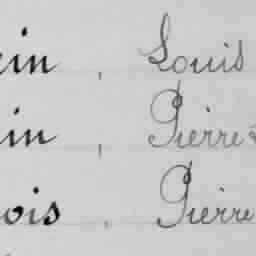 ein, Louis
in, Pierre
ois, Pierre